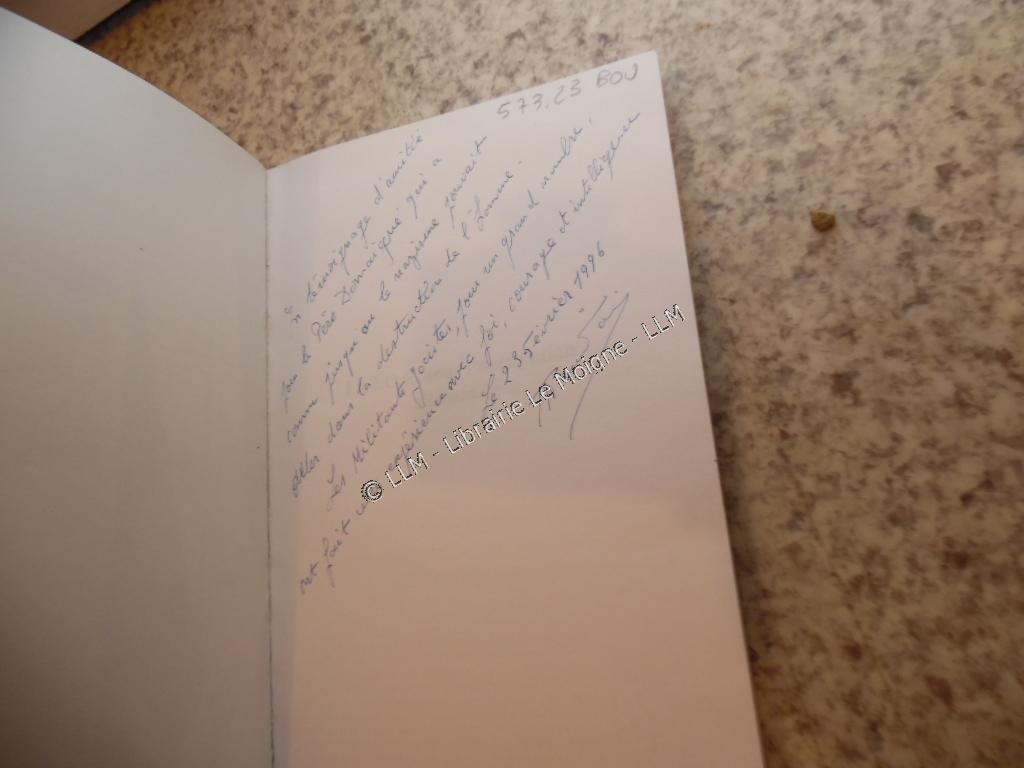 573.23 BOU
Ce témoignage d'amitié
pour le Père Dominique qui a
connu jusqu'où le nazisme pouvait
aller dans la destruction de l'homme.
Les Militants Jocistes, pour un grand nombre,
ont fait expérience avec foi, courage et intelligence
le 23 Février 1996
© LLM - Librairie Le Moigne - LLM